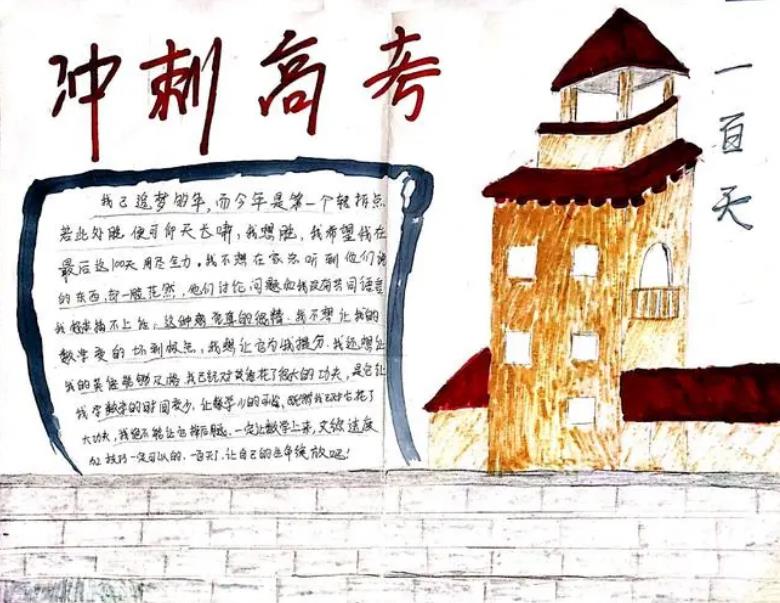 冲刺高考
一百天
我已追梦多年,而今年是第一个转折点
若此处胜 便可仰天长啸,我想胜,我希望我在
最后这100天 用尽全力。我不想在家总听到他们说
的东西,都一脸茫然,他们讨论问题而我没有共同语言
我根本插不上话,这种感觉真的很糟。我不想让我的
数学变的 坏到极点,我想让它为我提分,我还想让
我的英语能够及格 我已经对英语花了很大的功夫,
我学数学的时间变少,让数学
大功夫,我绝不能让它掉后腿,一定让数学上来,文综速度
加技巧一定可以的,一百天了,让自己的三年绽放吧!